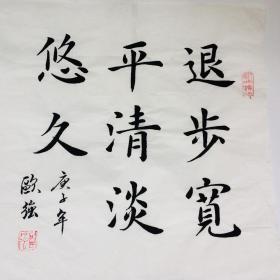 退步寬
平清淡
悠久
庚子年
歐强